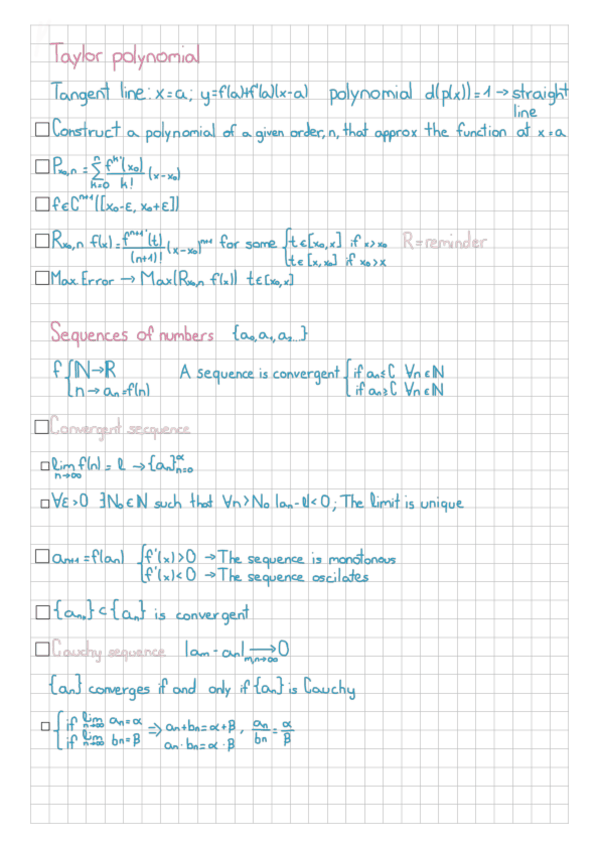 Taylor polynomial
Tangent line: x=a; y=f(a)+f'(a)(x-a) polynomial d(p(x))=1 → straight line
Construct a polynomial of a given order, n, that approx the function at x=a
Pₓ₀,n = Σ_{k=0}^{n} f^{k'}(x₀)/k! (x-x₀)
f∈Cⁿ⁺¹([x₀-ε, x₀+ε])
Rₓ₀,n f(x) = f^{n+1'}(t)/(n+1)! (x-x₀)ⁿ⁺¹ for some { t∈[x₀,x] if x>x₀ R=reminder
t∈[x,x₀] if x₀>x
Max Error → Max(Rₓ₀,n f(x)) t∈[x₀,x]
Sequences of numbers {a₀,a₁,a₂...}
f { ℕ→R A sequence is convergent { if an≤C ∀n∈ℕ
n→an=f(n) if an≥C ∀n∈ℕ
Convergent secquence
lim_{n→∞} f(n) = l → {an}_{n=0}^{∝}
∀ε>0 ∃N₀∈N such that ∀n>N₀ |an-l|<0; The limit is unique
an+1=f(an) { f'(x)>0 → The sequence is monotonous
f'(x)<0 → The sequence oscilates
{an.}⊂{an} is convergent
Cauchy sequence |am-an| →_{m,n→∞} 0
{an} converges if and only if {an} is Cauchy
{ if lim_{n→∞} an=α ⇒ an+bn=α+β, an/bn=α/β
if lim_{n→∞} bn=β an·bn=α·β